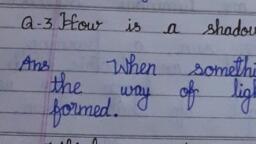 Q-3 How is a shadow
Ans When somethi
the way of lig
formed.